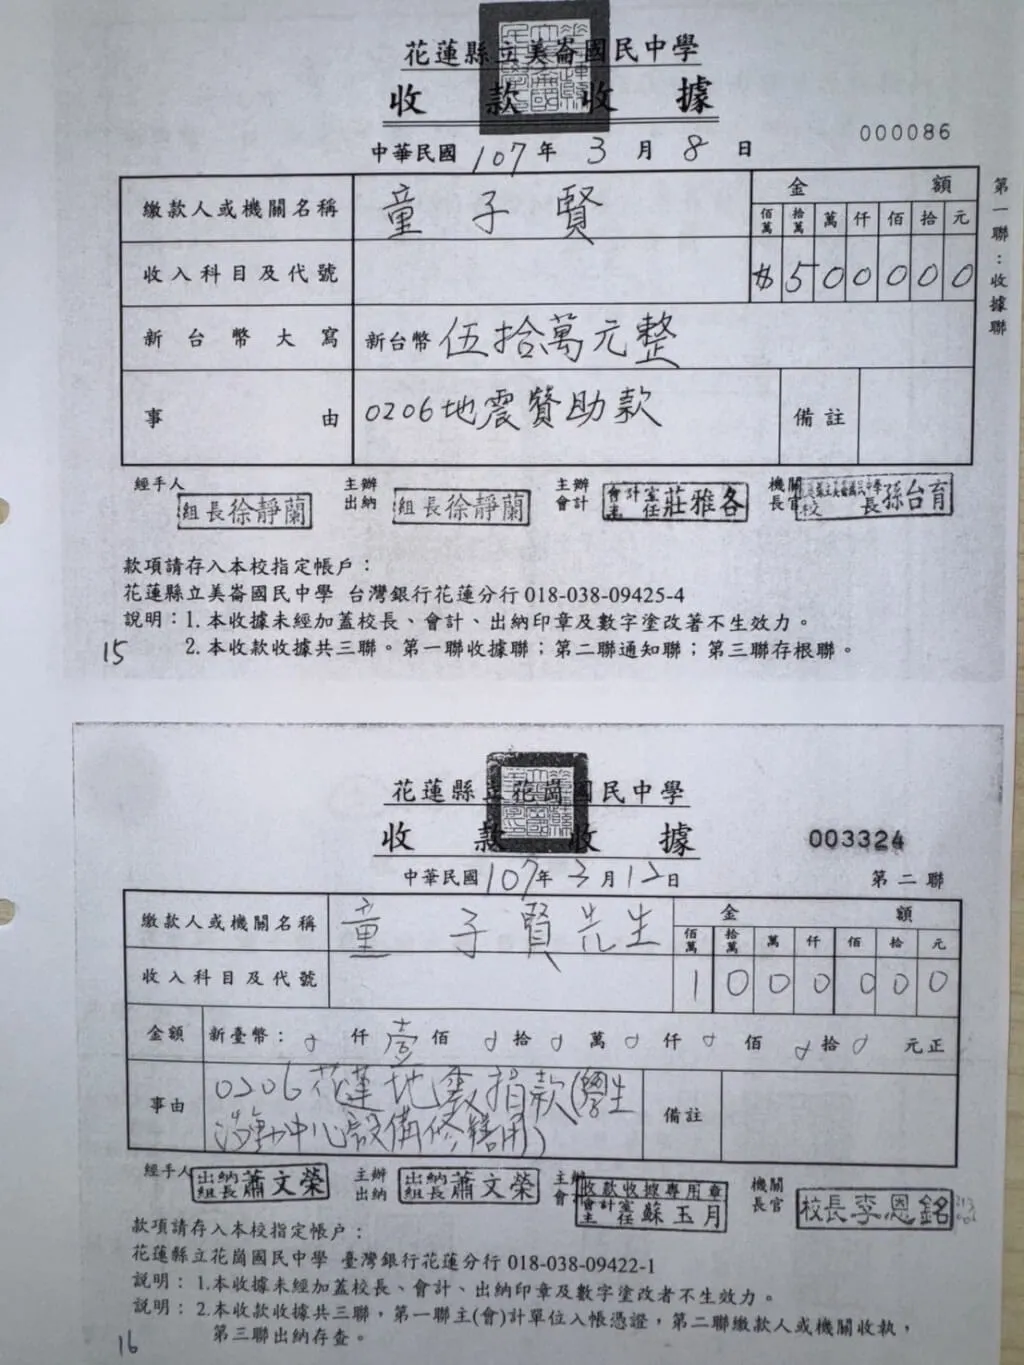 花蓮縣立美崙國民中學
收款收據
000086
中華民國107年3月8日
繳款人或機關名稱 童子賢 金額
佰萬 拾萬 萬 仟 佰 拾 元
收入科目及代號 $500000
新台幣大寫 新台幣伍拾萬元整
事由 0206地震贊助款 備註
第一聯：收據聯
經手人 組長徐靜蘭 主辦出納 組長徐靜蘭 主辦會計 會計室主任莊雅各 機關長官 校長孫台育
款項請存入本校指定帳戶：
花蓮縣立美崙國民中學 台灣銀行花蓮分行018-038-09425-4
說明：1.本收據未經加蓋校長、會計、出納印章及數字塗改著不生效力。
2.本收款收據共三聯。第一聯收據聯；第二聯通知聯；第三聯存根聯。
15
花蓮縣立花崗國民中學
收款收據
003324
中華民國107年3月12日 第二聯
繳款人或機關名稱 童子賢先生 金額
佰萬 拾萬 萬 仟 佰 拾 元
收入科目及代號 1000000
金額 新臺幣：0仟壹佰0拾0萬0仟0佰0拾0元正
事由 0206花蓮地震捐款(學生
活動中心設備修繕用) 備註
經手人 出納組長蕭文榮 主辦出納 出納組長蕭文榮 主辦會計 收款收據專用章 會計室主任蘇玉月 機關長官 校長李恩銘
款項請存入本校指定帳戶：
花蓮縣立花崗國民中學 臺灣銀行花蓮分行018-038-09422-1
說明：1.本收據未經加蓋校長、會計、出納印章及數字塗改者不生效力。
說明：2.本收款收據共三聯，第一聯主(會)計單位入帳憑證，第二聯繳款人或機關收執，
第三聯出納存查。
16